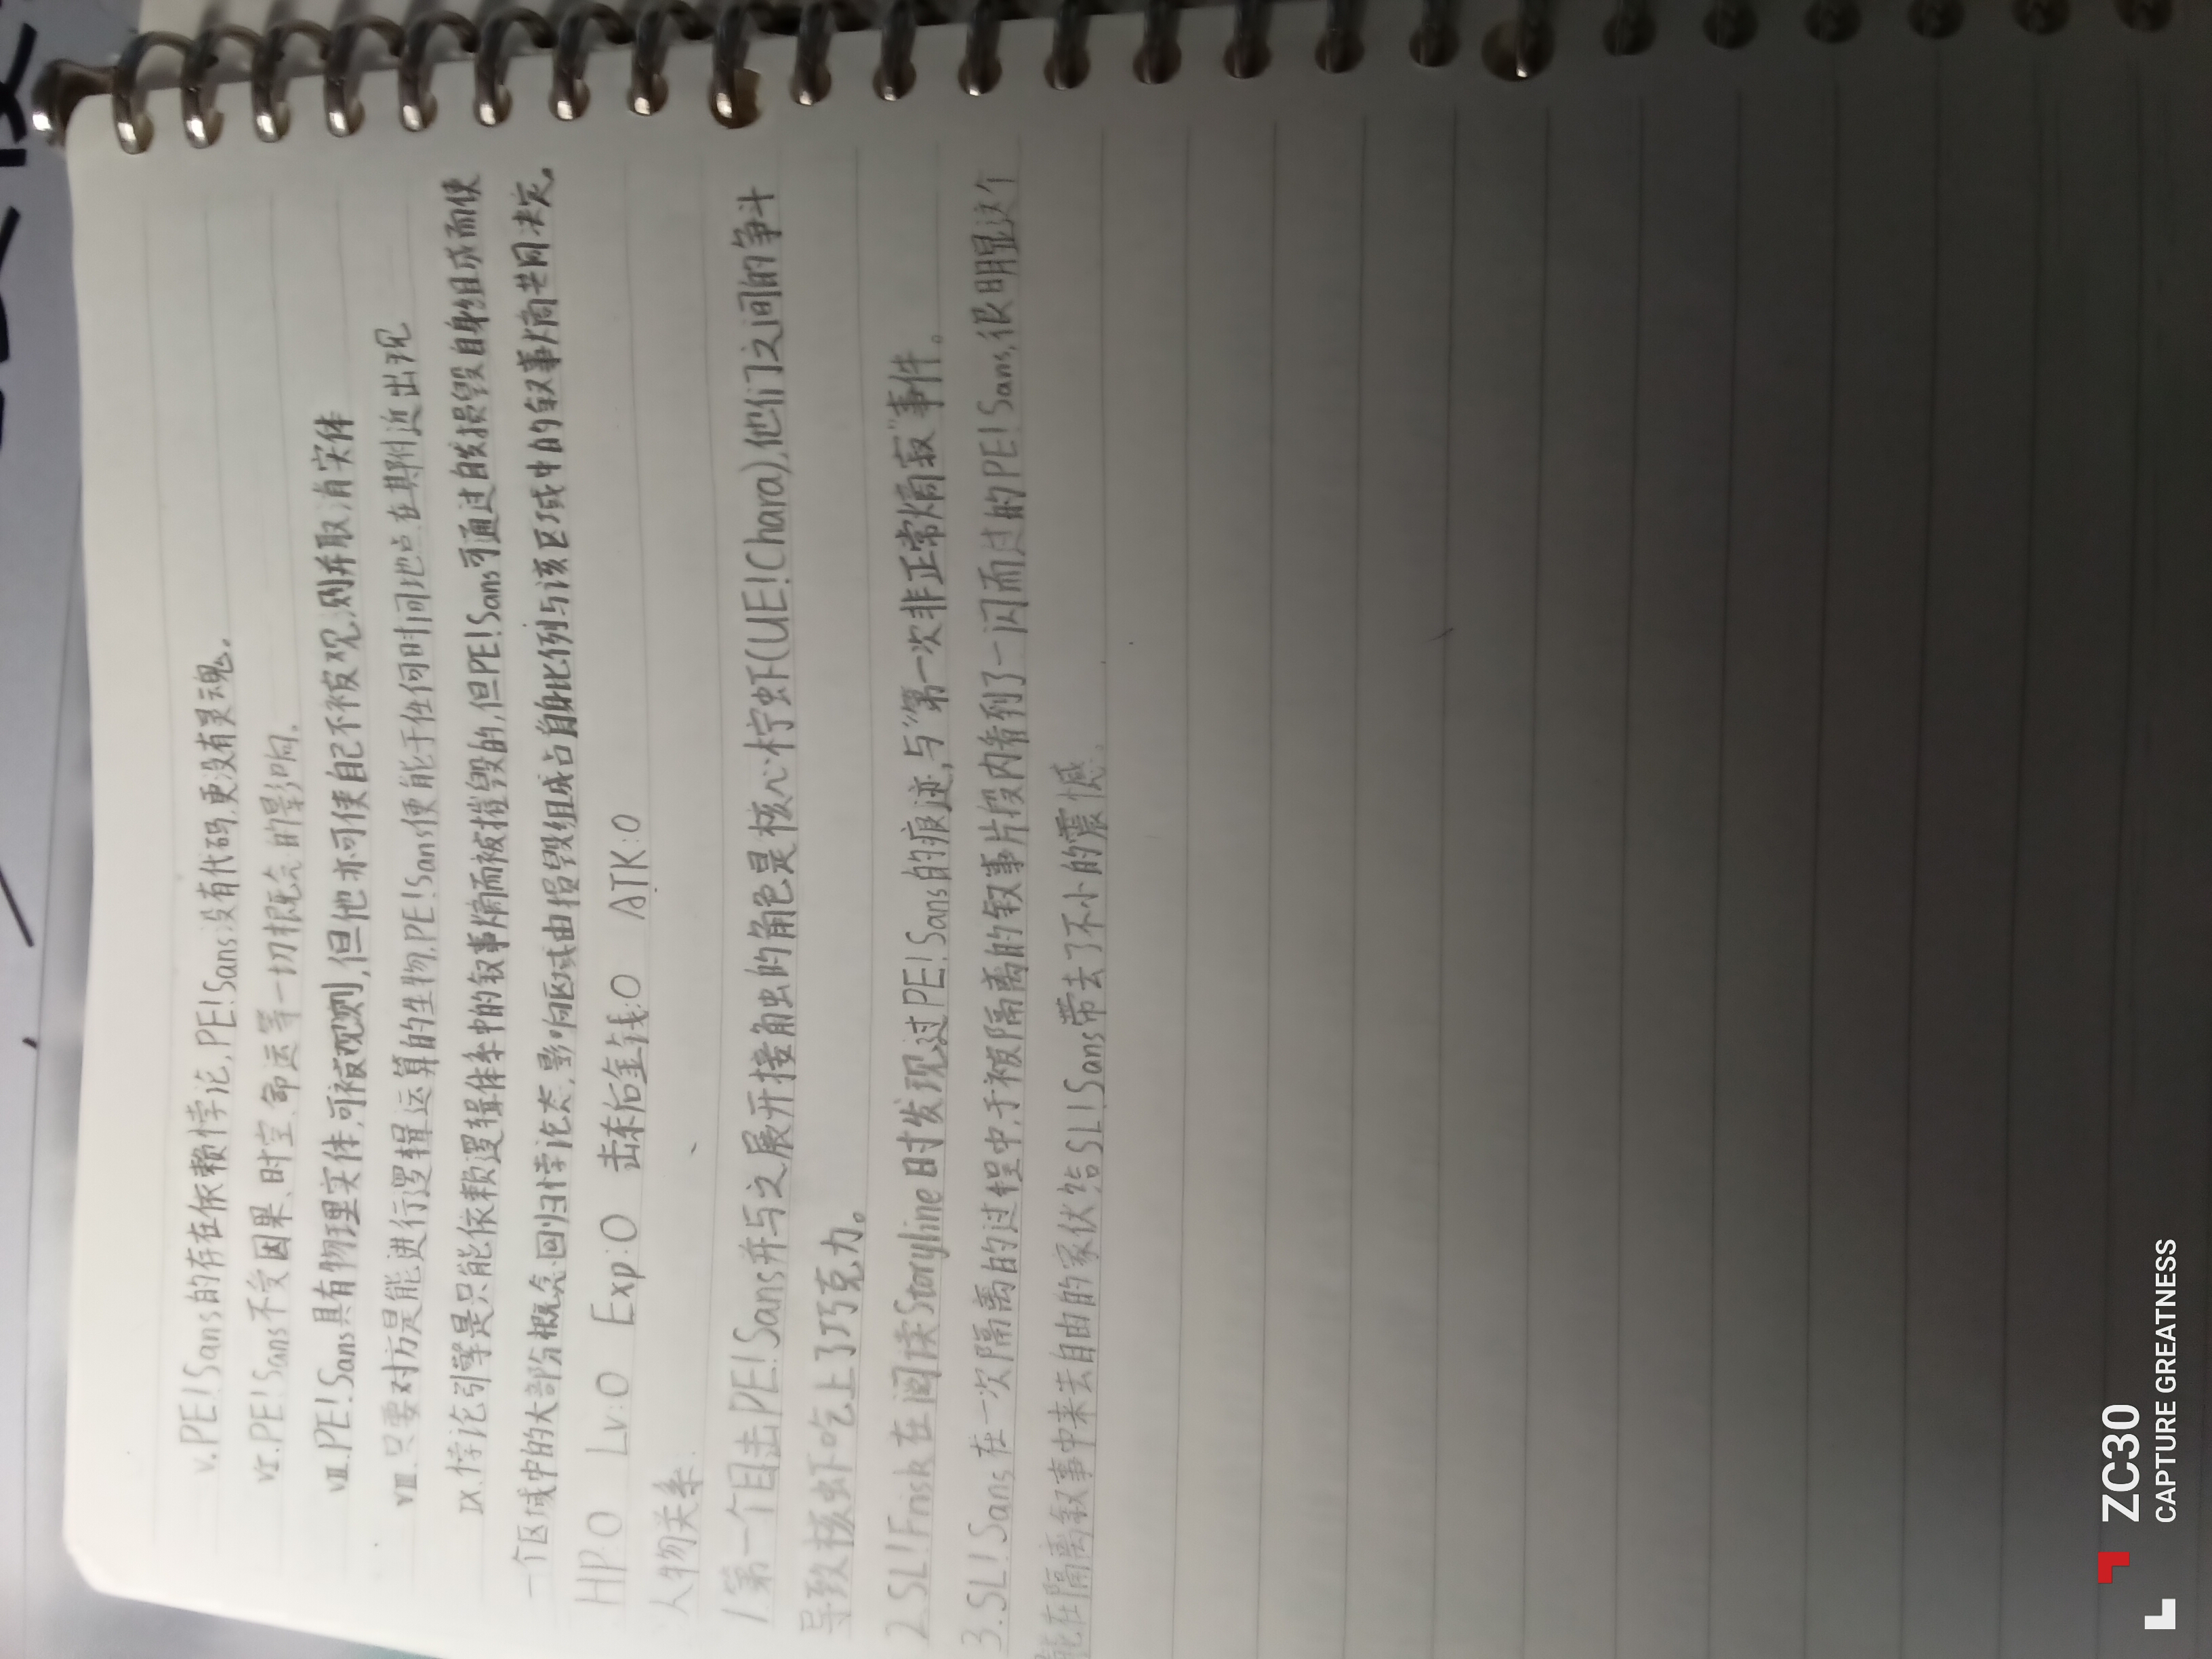 V.PE!Sans的存在依赖悖论,PE!Sans没有代码,更没有灵魂。
VI.PE!Sans不受因果、时空、命运等一切概念的影响。
VII.PE!Sans具有物理实体,可被观测,但他亦可使自己不被观测并取消实体
VIII.只要对方是能进行逻辑运算的生物,PE!Sans便能于任何时间地点在其附近出现
IX.悖论引擎是只能依赖逻辑体系中的叙事熵而被摧毁的,但PE!Sans可通过自我损毁自身组成而使
一个区域中的大部分概念回归悖论态,影响区域由损毁组成占自身比例与该区域中的叙事熵共同决定。
HP:0 Lv:0 Exp:0 击杀后金钱:0 ATK:0
人物关系:
1.第一个目击PE!Sans并与之展开接触的角色是核心柠虾(UE!Chara),他们之间的争斗
导致核虾吃上了巧克力。
2.SL!Frisk在阅读Storyline时发现过PE!Sans的痕迹,与"第一次非正常熵寂"事件。
3.SL!Sans在一次隔离的过程中,于被隔离的叙事片段内看到了一闪而过的PE!Sans,很明显这个
能在隔离叙事中来去自由的家伙给SL!Sans带去了不小的震憾。
ZC30
CAPTURE GREATNESS